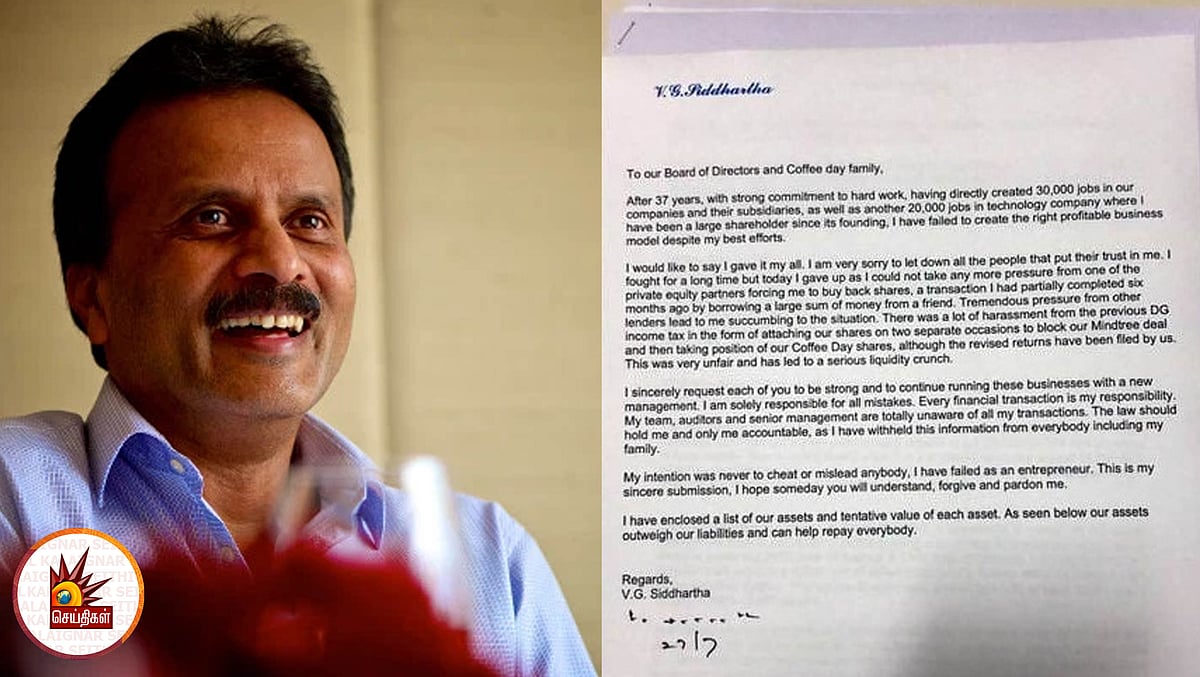 V.G.Siddhartha
To our Board of Directors and Coffee day family,
After 37 years, with strong commitment to hard work, having directly created 30,000 jobs in our
companies and their subsidiaries, as well as another 20,000 jobs in technology company where I
have been a large shareholder since its founding, I have failed to create the right profitable business
model despite my best efforts.
I would like to say I gave it my all. I am very sorry to let down all the people that put their trust in me. I
fought for a long time but today I gave up as I could not take any more pressure from one of the
private equity partners forcing me to buy back shares, a transaction I had partially completed six
months ago by borrowing a large sum of money from a friend. Tremendous pressure from other
lenders lead to me succumbing to the situation. There was a lot of harassment from the previous DG
income tax in the form of attaching our shares on two separate occasions to block our Mindtree deal
and then taking position of our Coffee Day shares, although the revised returns have been filed by us.
This was very unfair and has led to a serious liquidity crunch.
I sincerely request each of you to be strong and to continue running these businesses with a new
management. I am solely responsible for all mistakes. Every financial transaction is my responsibility.
My team, auditors and senior management are totally unaware of all my transactions. The law should
hold me and only me accountable, as I have withheld this information from everybody including my
family.
My intention was never to cheat or mislead anybody, I have failed as an entrepreneur. This is my
sincere submission, I hope someday you will understand, forgive and pardon me.
I have enclosed a list of our assets and tentative value of each asset. As seen below our assets
outweigh our liabilities and can help repay everybody.
Regards,
V.G. Siddhartha
27/7
செய்திகள்